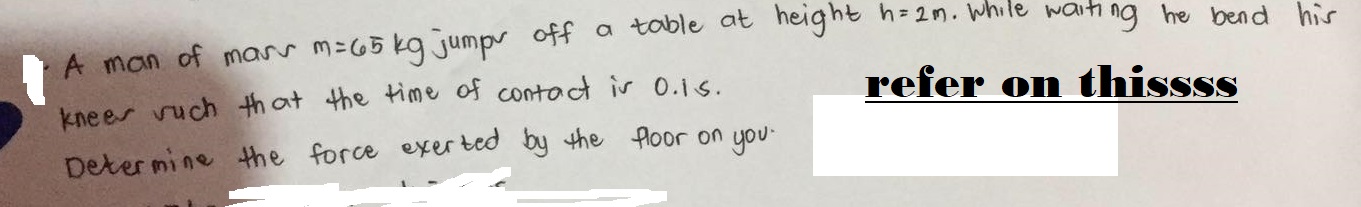 A man of mass m=65 kg jumps off a table at height h=2m. While waiting he bend his
knees such that the time of contact is 0.1s.
refer on thissss
Determine the force exerted by the floor on you.